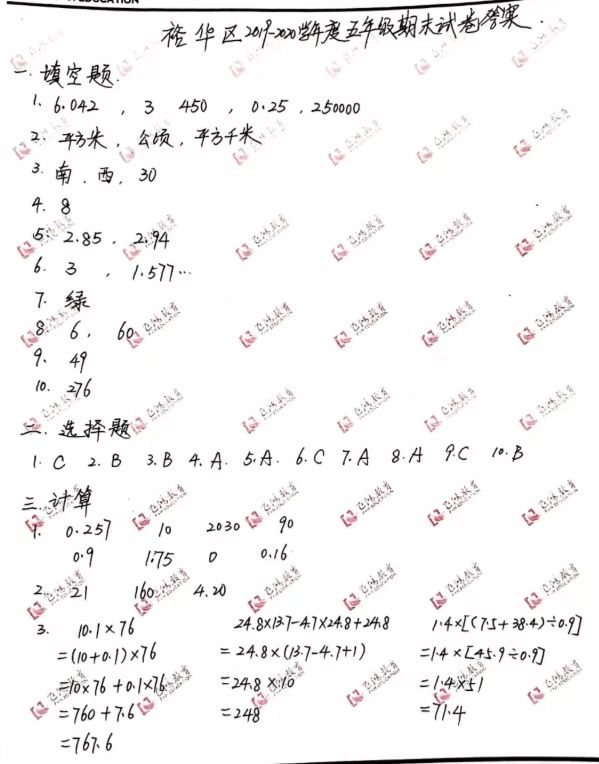 EDUCATION
裕华区2019-2020学年度五年级期末试卷答案.
一.填空题.
1. 6.042 , 3 450 , 0.25 , 250000
2. 平方米, 公顷, 平方千米
3. 南. 西, 30
4. 8
5. 2.85 , 2.94
6. 3 , 1.577…
7. 绿
8. 6, 60
9. 49
10. 276
二. 选择题
1. C 2. B 3. B 4. A. 5. A. 6. C 7. A 8. A 9. C 10. B
三.计算
1. 0.257 10 2030 90
0.9 1.75 0 0.16
2. 21 160 4.20
3. 10.1×76 24.8×13.7-4.7×24.8+24.8 1.4×[(7.5+38.4)÷0.9]
=(10+0.1)×76 =24.8×(13.7-4.7+1) =1.4×[45.9÷0.9]
=10×76+0.1×76 =24.8×10 =1.4×51
=760+7.6 =248 =71.4
=767.6